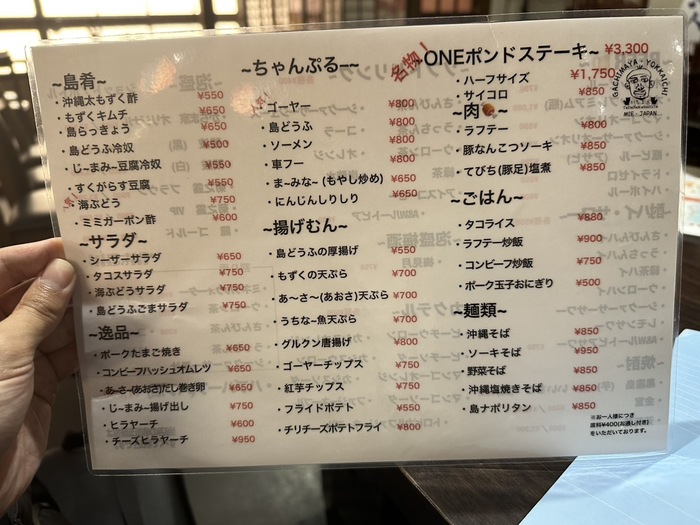 ~島肴~
・沖縄太もずく酢 ¥550
・もずくキムチ ¥650
・島らっきょう ¥650
・島どうふ冷奴 ¥500
・じ~まみ~豆腐冷奴 ¥650
・すくがらす豆腐 ¥550
・海ぶどう ¥750
・ミミガーポン酢 ¥600
~サラダ~
・シーザーサラダ ¥650
・タコスサラダ ¥750
・海ぶどうサラダ ¥750
・島どうふごまサラダ ¥750
~逸品~
・ポークたまご焼き ¥650
・コンビーフハッシュオムレツ ¥650
・あ~さ~(あおさ)だし巻き卵 ¥650
・じ~まみ~揚げ出し ¥750
・ヒラヤーチ ¥600
・チーズヒラヤーチ ¥950
~ちゃんぷるー~
・ゴーヤー ¥800
・島どうふ ¥800
・ソーメン ¥800
・車フー ¥800
・ま~みな~(もやし炒め) ¥650
・にんじんしりしり ¥650
~揚げむん~
・島どうふの厚揚げ ¥550
・もずくの天ぷら ¥700
・あ~さ~(あおさ)天ぷら ¥700
・うちな~魚天ぷら ¥700
・グルクン唐揚げ ¥800
・ゴーヤーチップス ¥750
・紅芋チップス ¥750
・フライドポテト ¥550
・チリチーズポテトフライ ¥800
名物!
~ONEポンドステーキ~ ¥3,300
・ハーフサイズ ¥1,750
・サイコロ ¥850
~肉~
・ラフテー ¥800
・豚なんこつソーキ ¥850
・てびち(豚足)塩煮 ¥850
~ごはん~
・タコライス ¥880
・ラフテー炒飯 ¥900
・コンビーフ炒飯 ¥750
・ポーク玉子おにぎり ¥500
~麺類~
・沖縄そば ¥850
・ソーキそば ¥950
・野菜そば ¥850
・沖縄塩焼きそば ¥850
・島ナポリタン ¥850
※お一人様につき
席料¥400(お通し付き)
をいただいております。
GACHIMAYA・YOKKAICHI
MIE・JAPAN